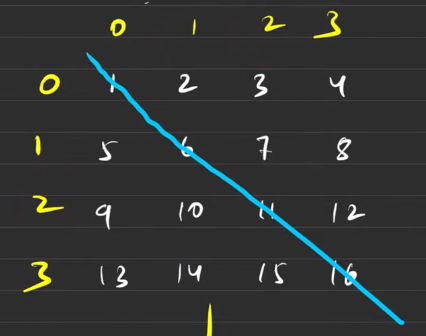 0 1 2 3
0 1 2 3 4
1 5 6 7 8
2 9 10 11 12
3 13 14 15 16